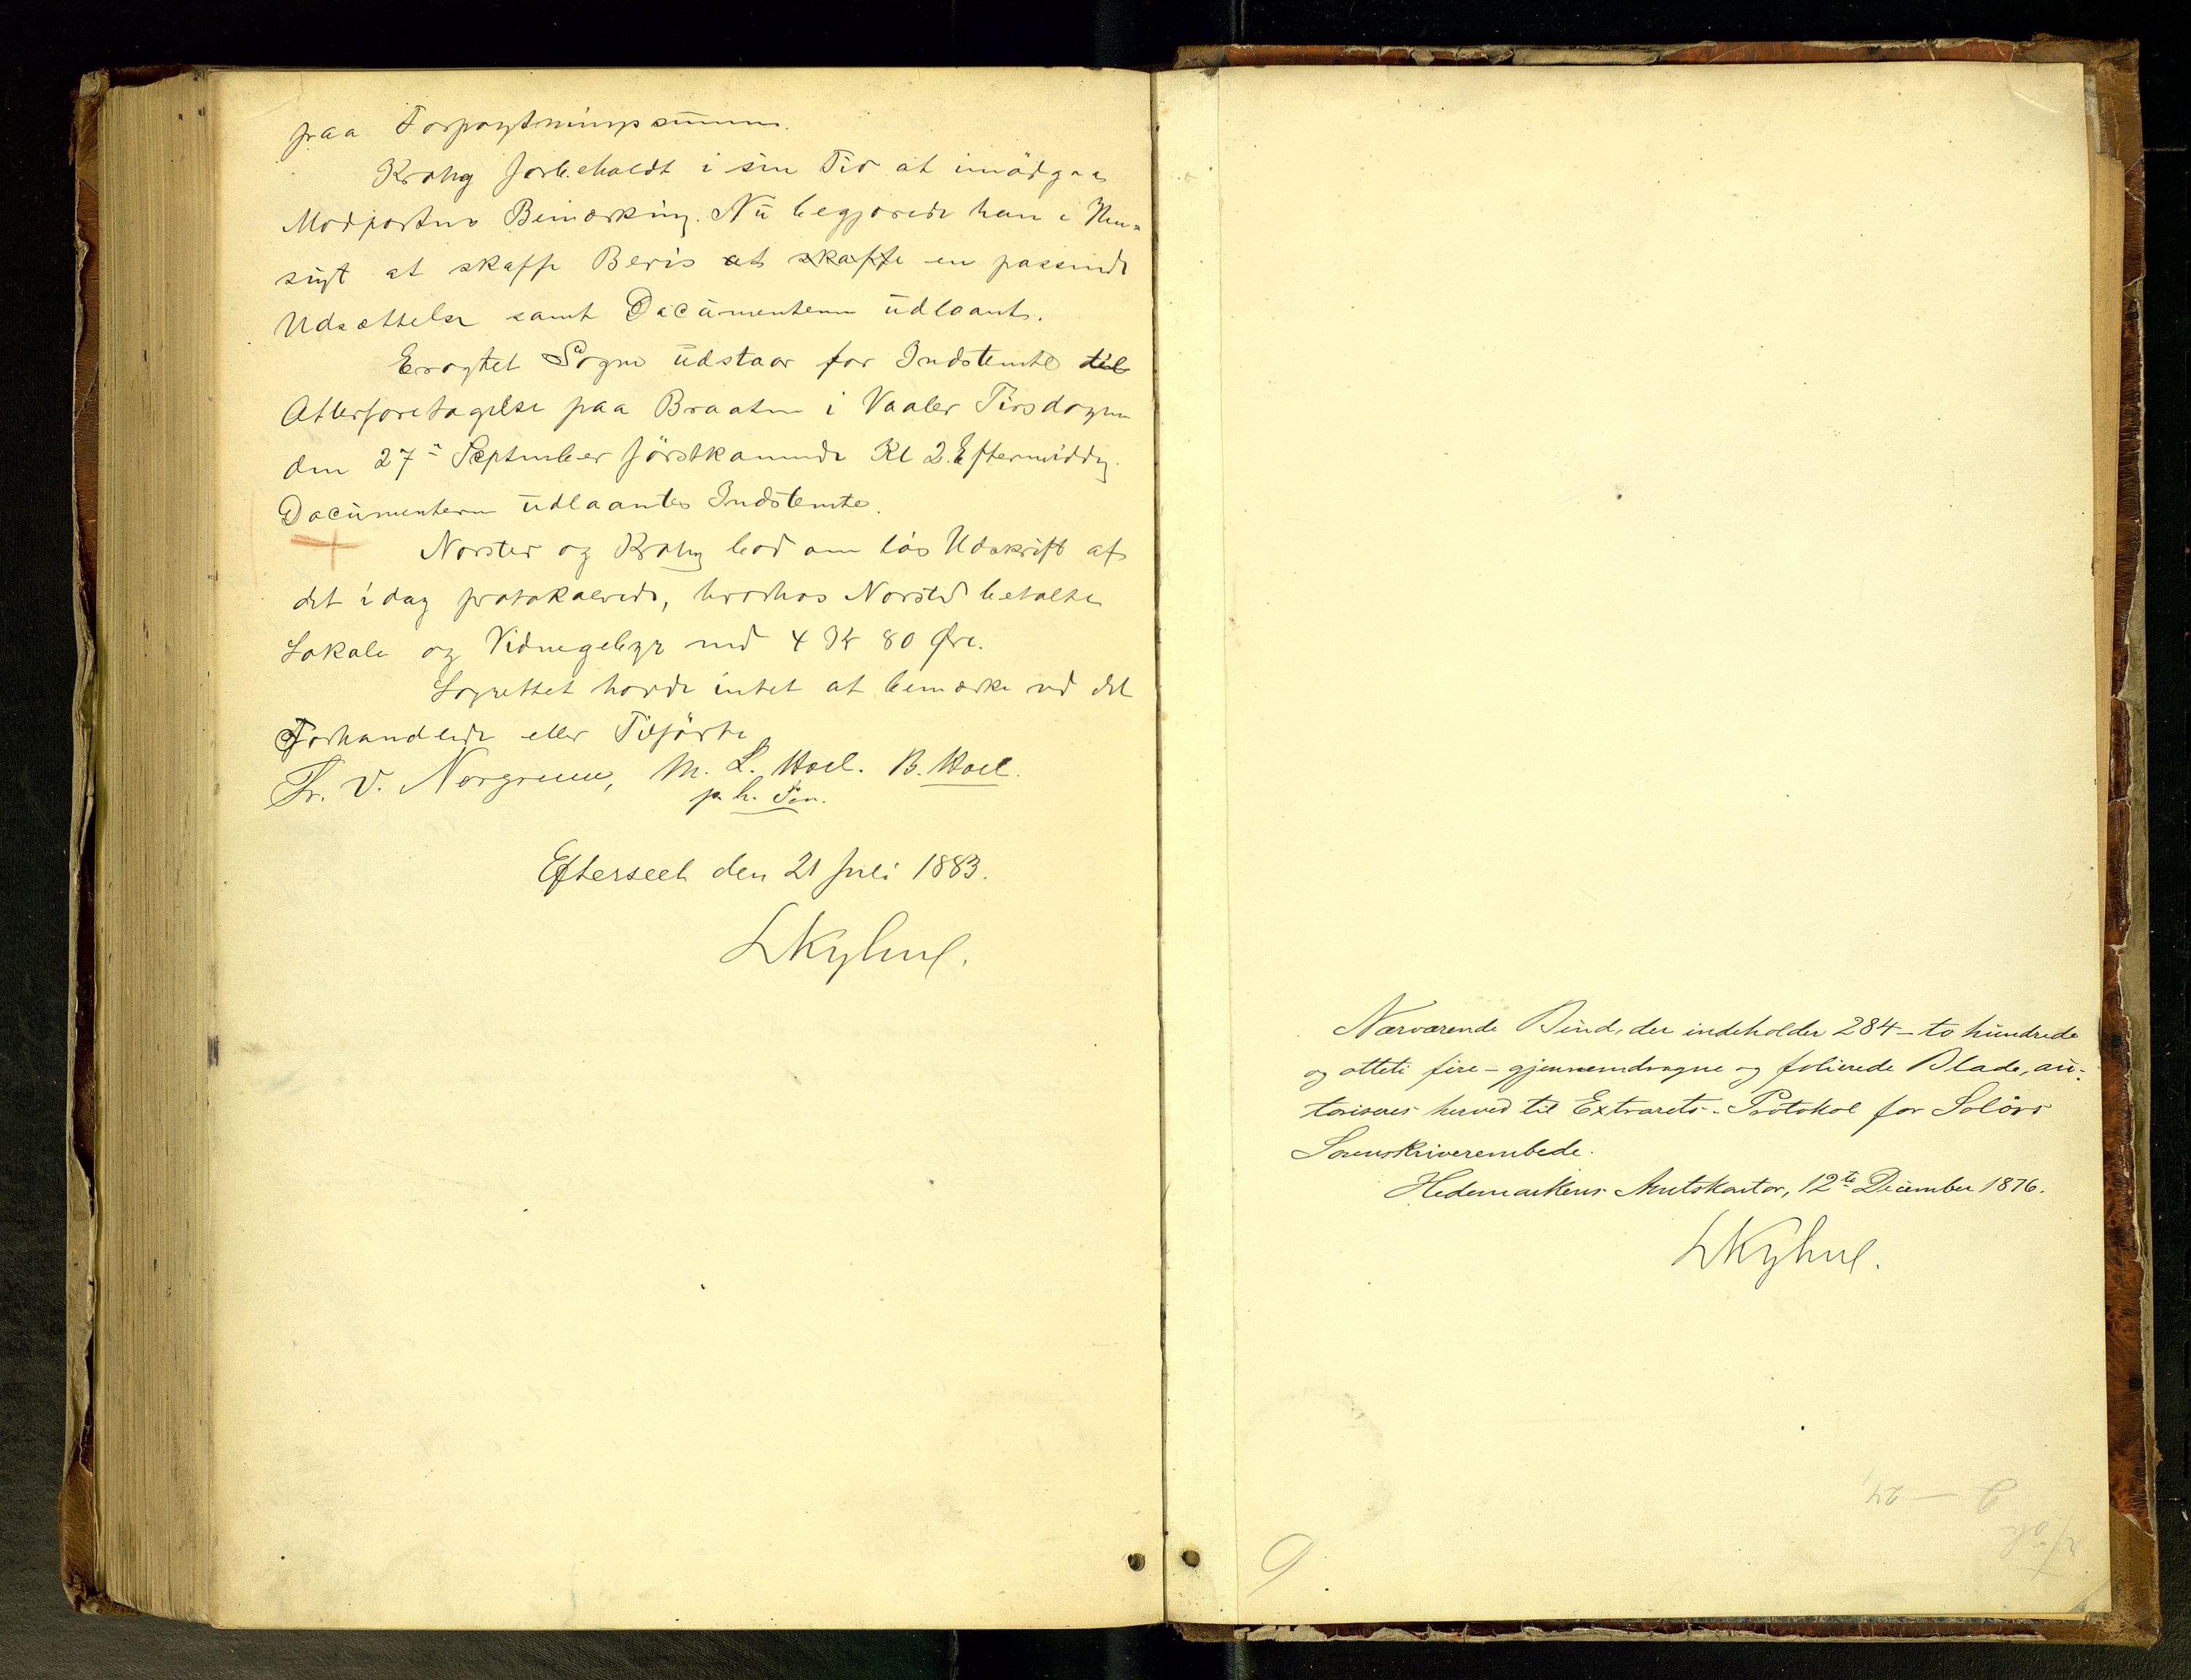 paa Forpagtningssummen.
Krohg forbeholdt i sin Tid at imødgaa
Modpartens Bemærkning. Nu begjærede han i Hen-
sigt at skaffe Bevis at skaffe en passende
Udsættelse samt Documenterne udlaant.
Eragtet Sagen udstaar for Indstemte til
Atterforetagelse paa Braaten i Vaaler Tirsdagen
den 27de September førstkommende Kl 2 Eftermiddag.
Documenterne udlaantes Indstemte.
Norsted og Krohg bad om løs Udskrift af
det idag protokolerede, hvorhos Norsted betalte
Lokale og Vidnegebyr med 4 Kr 80 Øre.
Lagrettet havde intet at bemærke ved det
Forhandlede eller Tilførte
Fr. V. Norgreen, M. L. Hoel. B. Hoel.
p. h. Pen.
Efterseet den 21 Juli 1883.
LKyhnl.
Nærværende Bind, der indeholder 284 - to hundrede
og otteti fire - gjennemdragne og folierede Blade, au-
toriseres herved til Extrarets-Protokol for Solørs
Sorenskriverembede.
Hedemarkens Amtskontor, 12te December 1876.
LKyhnl.